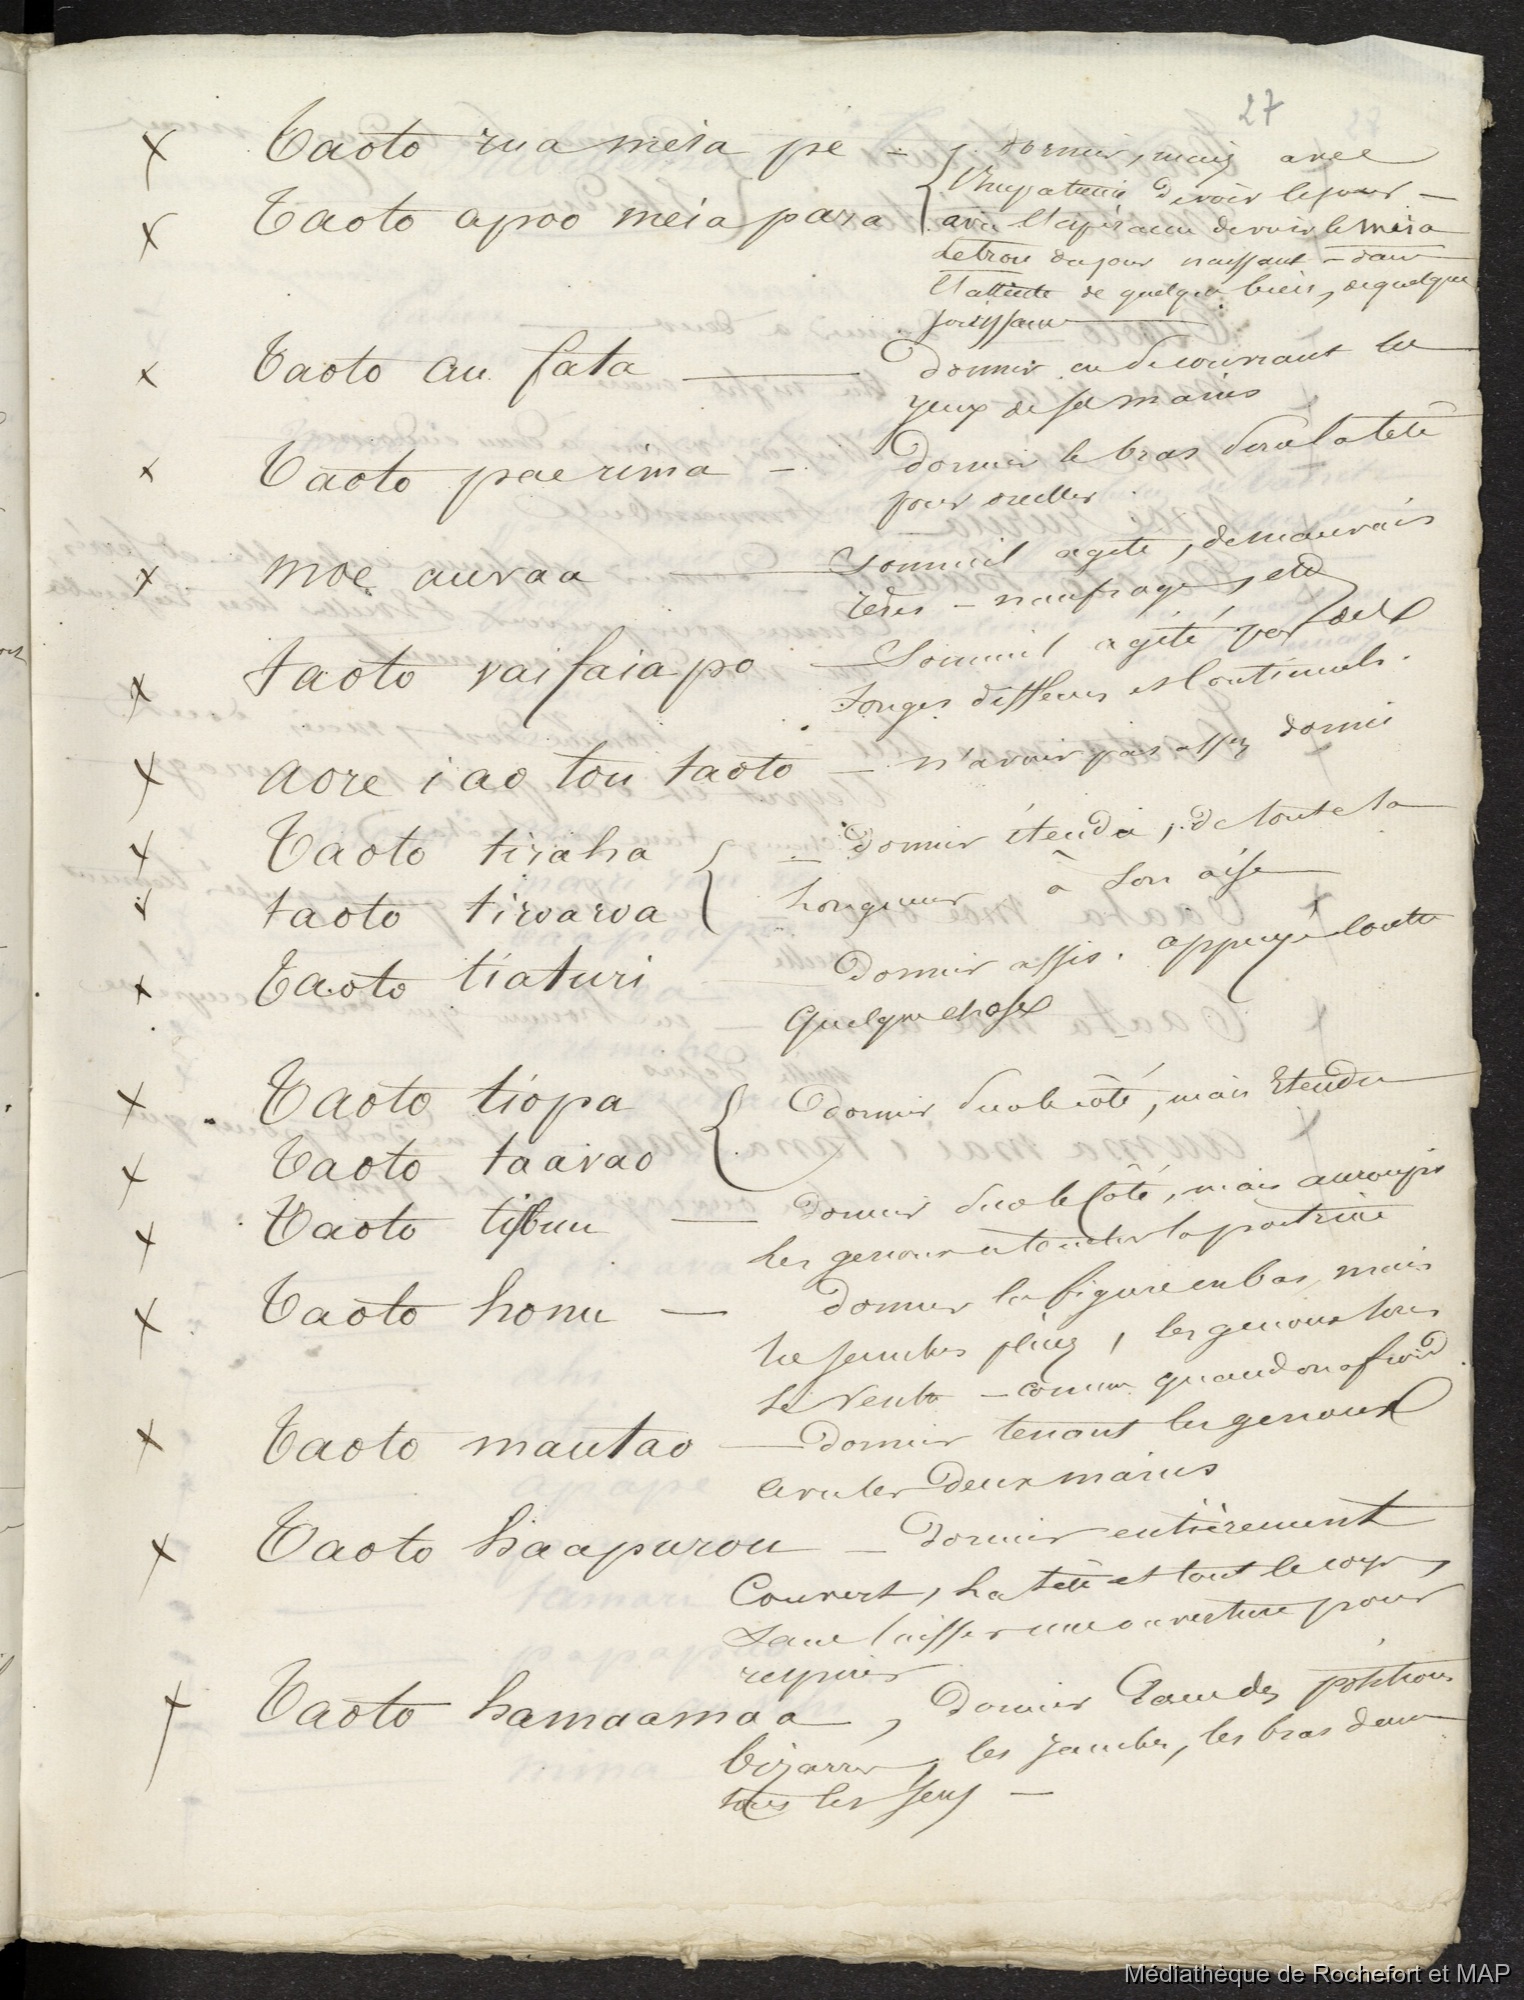 27
x Taoto rua meia pe – dormir, mais avec
l'impatience de voir le jour –
x Taoto apoo meia para { avec l'espérance de voir le meia
le trou du jour naissant – dans
l'attente de quelque bien, de quelque
jouissance
x Taoto au fata — Dormir en se couvrant les
yeux de ses mains
x Taoto pae rima – Dormir le bras sous la tête
pour oreiller.
x moe auraa — Sommeil agité, de mauvais
rêves – naufrages, etc
x taoto vai faia po — Sommeil agité par des
songes différens et continuels.
x aore i ao tou taoto – n'avoir pas assez dormi
x Taoto tiraha { – Dormir étendu, de toute la
x taoto tiroaroa longueur à son aise
x Taoto tiaturi — Dormir assis. appuyé contre
quelque chose
x Taoto tiopa { Dormir sur le côté, mais étendu
x Taoto taavao
x Taoto — Dormir sur le côté, mais accroupi
les genoux à toucher la poitrine
x Taoto honu — Dormir la figure en bas, mais
les jambes pliées, les genoux sous
le ventre – comme quand on a froid.
x Taoto mautao — Dormir tenant les genoux
avec les deux mains
x Taoto haapurou – Dormir entièrement
couvert, la tête et tout le corps,
sans laisser une ouverture pour
respirer
x Taoto hamaamaa, Dormir dans des positions
bizarres, les jambes, les bras dans
tous les sens –
Médiathèque de Rochefort et MAP